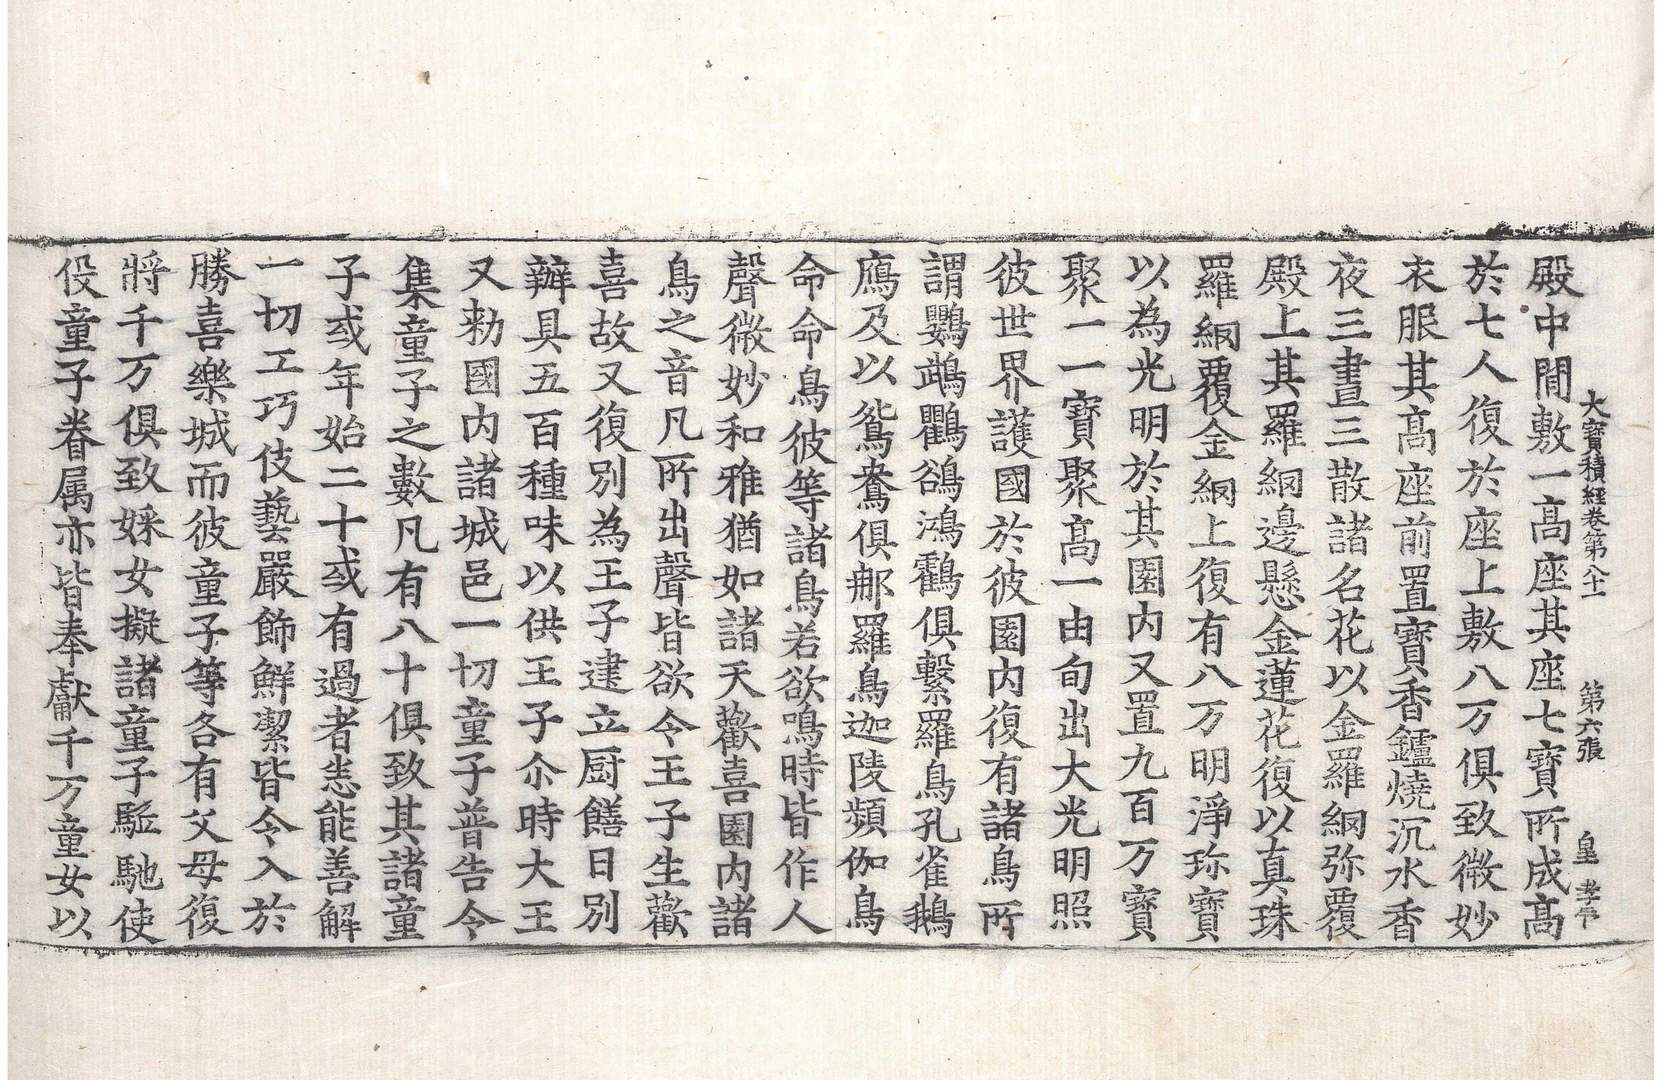 大寶積經卷第八十一 第六張 皇 孝
殿中閒敷一高座其座七寶所成高
於七人復於座上敷八万俱致微妙
衣服其高座前置寶香鑪燒沉水香
夜三晝三散諸名花以金羅網弥覆
殿上其羅網邊懸金蓮花復以真珠
羅網覆金網上復有八万明淨珎寶
以為光明於其園內又置九百万寶
聚一一寶聚高一由旬出大光明照
彼世界護國於彼園內復有諸鳥所
謂鸚鵡鸜鵒鴻鸖俱繫羅鳥孔雀鵝
鴈及以鴛鴦俱那羅鳥迦陵頻伽鳥
命命鳥彼等諸鳥若欲鳴時皆作人
聲微妙和雅猶如諸天歡喜園內諸
鳥之音凡所出聲皆欲令王子生歡
喜故又復別為王子建立厨饍日別
辦具五百種味以供王子尒時大王
又勑國內諸城邑一切童子普告令
集童子之數凡有八十俱致其諸童
子或年始二十或有過者悉能善解
一切工巧伎藝嚴飾鮮潔皆令入於
勝喜樂城而彼童子等各有父母復
將千万俱致婇女擬諸童子駈馳使
伇童子眷属亦皆奉獻千万童女以